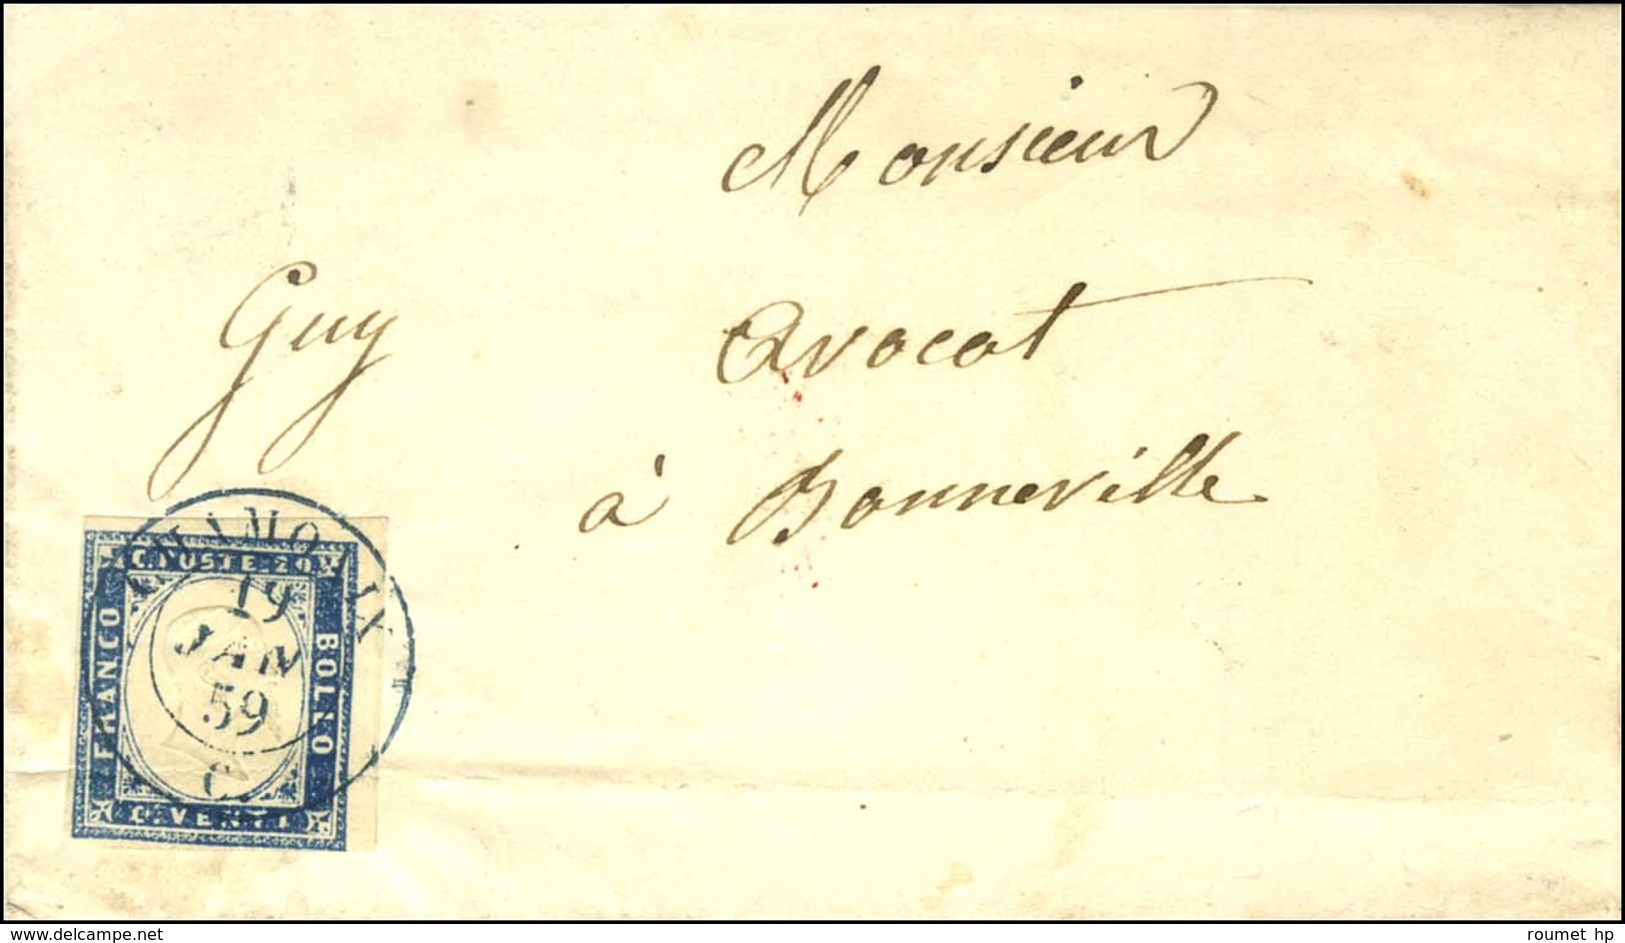 Monsieur
Guy Avocat
à Bonneville
CHAMONIX
19
JAN
59
C. POSTE 20
FRANCO
BOLLO
C. VENTI
www.delcampe.net
roumet hp